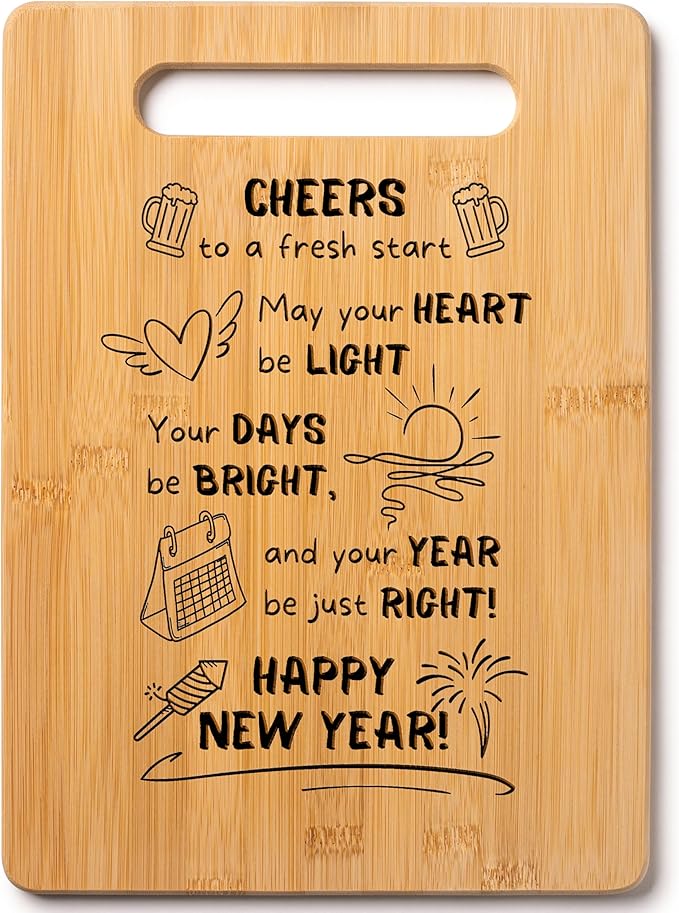 CHEERS
to a fresh start
May your HEART
be LIGHT
Your DAYS
be BRIGHT,
and your YEAR
be just RIGHT!
HAPPY
NEW YEAR!